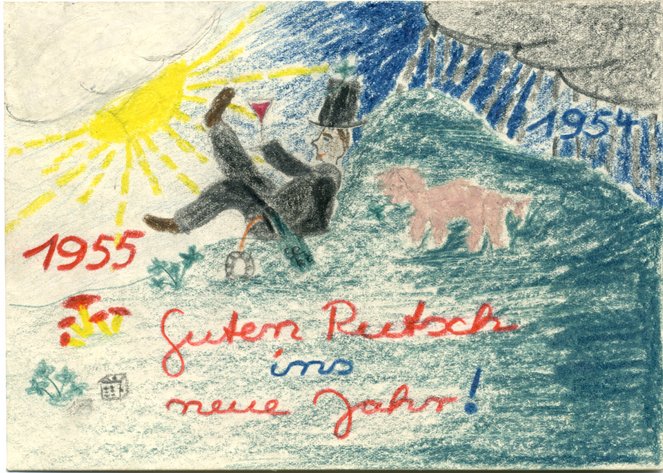 1954
1955
Guten Rutsch
ins
neue Jahr!